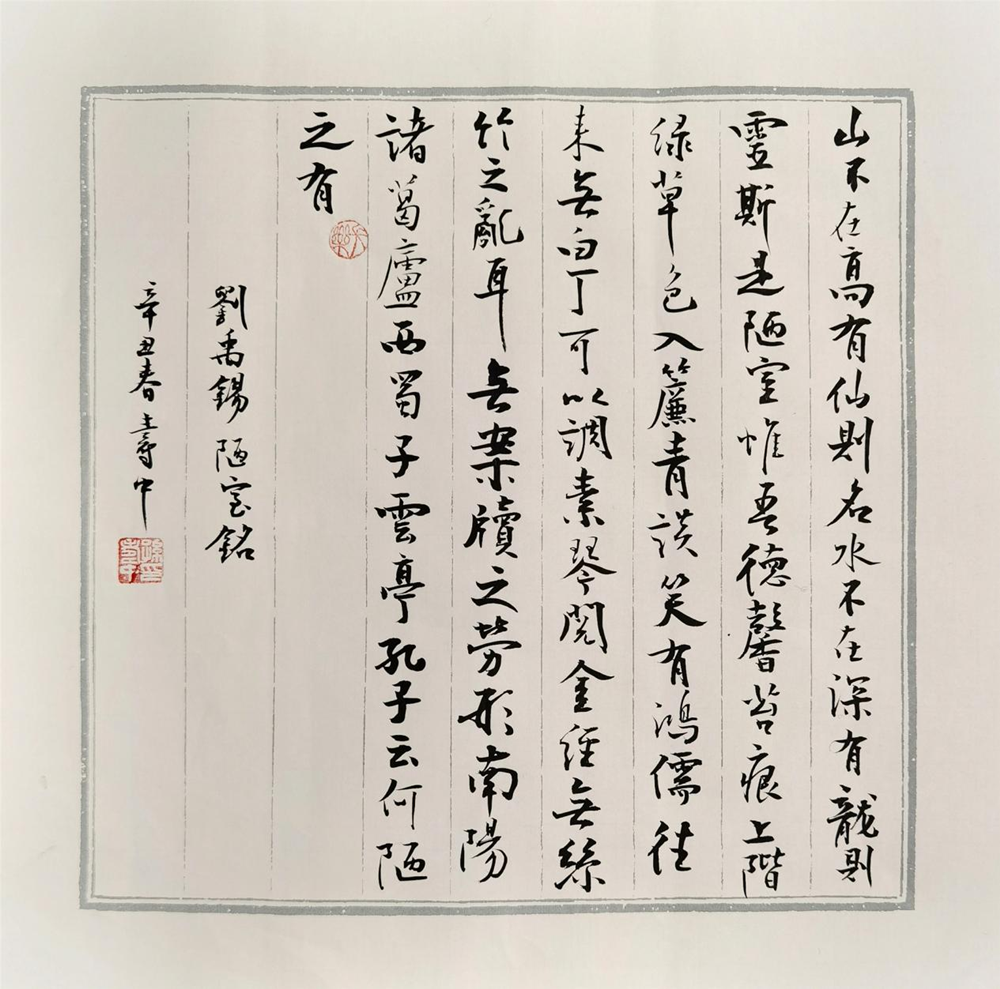 山不在高有仙則名水不在深有龍則
靈斯是陋室惟吾德馨苔痕上階
緑草色入簾青談笑有鴻儒往
来無白丁可以調素琴閱金經無絲
竹之亂耳無案牘之勞形南陽
諸葛廬西蜀子雲亭孔子云何陋
之有
劉禹錫陋室銘
辛丑春壽中